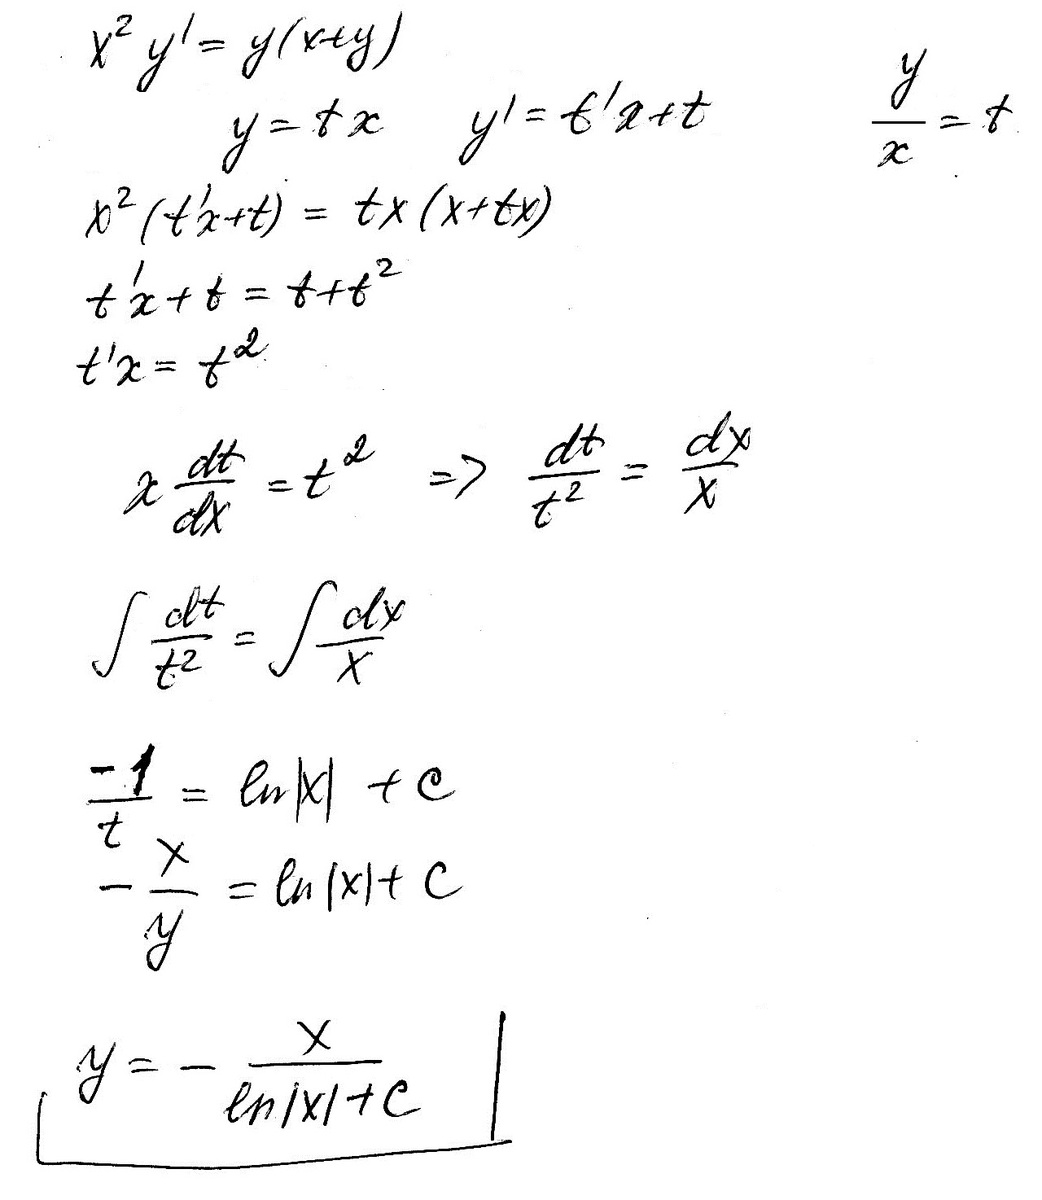 x² y' = y(x+y)
y = tx   y' = t'x+t   y/x = t
x²(t'x+t) = tx(x+tx)
t'x+t = t+t²
t'x = t²
x dt/dx = t² => dt/t² = dx/x
∫ dt/t² = ∫ dx/x
-1/t = ln|x| + c
- x/y = ln|x|+ C
y = - x/(ln|x|+C)